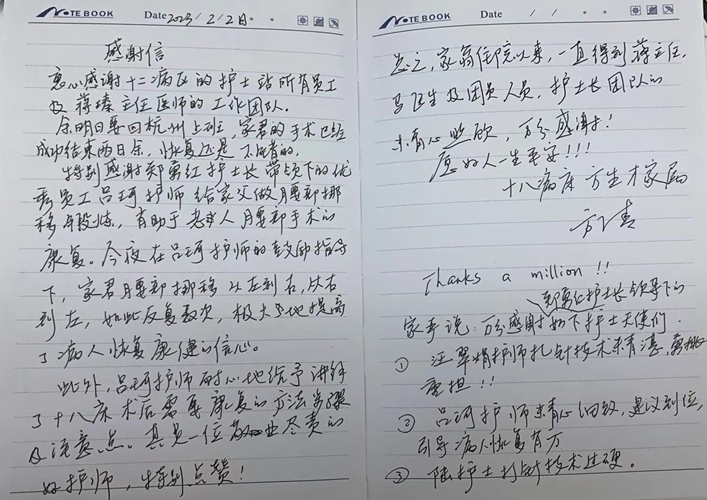 NOTE BOOK Date 2023/2/2日
感谢信
衷心感谢十二病区的护士站所有员工
及蒋 主任医师的工作团队。
余明日要回杭州上班，家君的手术已经
成功结束两日余，恢复还是不错的。
特别感谢郑 红护士长带领下的优
秀员工吕珂护师给家父做腰部挪
移锻炼，有助于老年人腰部手术的
康复。今夜在吕珂护师的鼓励指导
下，家君腰部挪移从左到右，从右
到左，如此反复数次，极大了地提高
了病人恢复康健的信心。
此外，吕珂护师耐心地给予讲解
了十八床术后需要康复的方法步骤
及注意点。真是一位敬业尽责的
好护师，特别点赞！
NOTE BOOK Date / /
总之，家翁住院以来，一直得到蒋主任、
马医生及团员人员，护士长团队的
精心照顾，万分感谢！
愿好人一生平安!!!
十八病床 方生才家属
方 清
Thanks a million !!
郑 红护士长领导下的
家 说：万分感谢如下护士天使们．
① 汪翠娟护师扎针技术 湛，
重担!!
② 吕珂护师精心细致，建议到位，
引导病人恢复有方
③ 陆护士打针技术过硬。